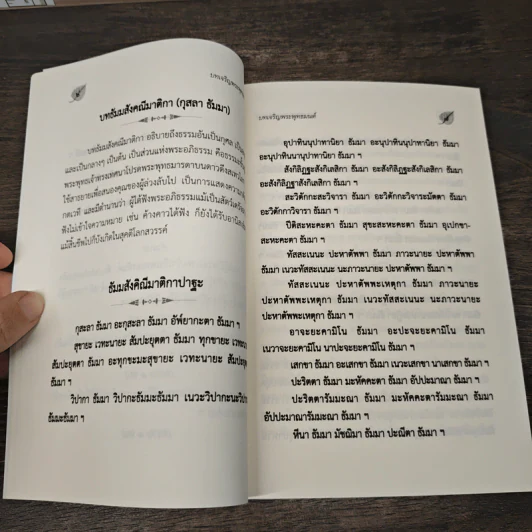 บทเจริญพระพุทธ
บทธัมมสังคณีมาติกา (กุสลา ธัมมา)
บทธัมมสังคณีมาติกา อธิบายถึงธรรมอันเป็นกุศล เป็น
และเป็นกลางๆ เป็นต้น เป็นส่วนแห่งพระอภิธรรม คือธรรมชั้น
พระพุทธเจ้าทรงเทศนาโปรดพระพุทธมารดาบนดาวดึงส์เทว
ใช้สาธยายเพื่อสนองคุณของผู้ล่วงลับไป เป็นการแสดงความ
กตเวที และมีตำนานว่า ผู้ได้ฟังพระอภิธรรมแม้เป็นสัตว์เดรัจ
ฟังไม่เข้าใจความหมาย เช่น ค้างคาวได้ฟัง ก็ยังได้รับอานิสง
แม้สิ้นชีพไปก็บังเกิดในสุคติโลกสวรรค์
ธัมมสังคิณีมาติกาปาฐะ
กุสะลา ธัมมา อะกุสะลา ธัมมา อัพ๎ยากะตา ธัมมา ฯ
สุขายะ เวทะนายะ สัมปะยุตตา ธัมมา ทุกขายะ เวทะนา
สัมปะยุตตา ธัมมา อะทุกขะมะสุขายะ เวทะนายะ สัมปะยุต
ธัมมา ฯ
วิปากา ธัมมา วิปากะธัมมะธัมมา เนวะวิปากะนะวิปา
ธัมมะธัมมา ฯ
บทเจริญพระพุทธมนต์
อุปาทินนุปาทานิยา ธัมมา อะนุปาทินนุปาทานิยา ธัมมา
อะนุปาทินนานุปาทานิยา ธัมมา ฯ
สังกิลิฏฐะสังกิเลสิกา ธัมมา อะสังกิลิฏฐะสังกิเลสิกา ธัมมา
อะสังกิลิฏฐาสังกิเลสิกา ธัมมา ฯ
สะวิตักกะสะวิจารา ธัมมา อะวิตักกะวิจาระมัตตา ธัมมา
อะวิตักกาวิจารา ธัมมา ฯ
ปีติสะหะคะตา ธัมมา สุขะสะหะคะตา ธัมมา อุเปกขา-
สะหะคะตา ธัมมา ฯ
ทัสสะเนนะ ปะหาตัพพา ธัมมา ภาวะนายะ ปะหาตัพพา
ธัมมา เนวะทัสสะเนนะ นะภาวะนายะ ปะหาตัพพา ธัมมา ฯ
ทัสสะเนนะ ปะหาตัพพะเหตุกา ธัมมา ภาวะนายะ
ปะหาตัพพะเหตุกา ธัมมา เนวะทัสสะเนนะ นะภาวะนายะ
ปะหาตัพพะเหตุกา ธัมมา ฯ
อาจะยะคามิโน ธัมมา อะปะจะยะคามิโน ธัมมา
เนวาจะยะคามิโน นาปะจะยะคามิโน ธัมมา ฯ
เสกขา ธัมมา อะเสกขา ธัมมา เนวะเสกขา นาเสกขา ธัมมา ฯ
ปะริตตา ธัมมา มะหัคคะตา ธัมมา อัปปะมาณา ธัมมา ฯ
ปะริตตารัมมะณา ธัมมา มะหัคคะตารัมมะณา ธัมมา
อัปปะมาณารัมมะณา ธัมมา ฯ
หีนา ธัมมา มัชฌิมา ธัมมา ปะณีตา ธัมมา ฯ